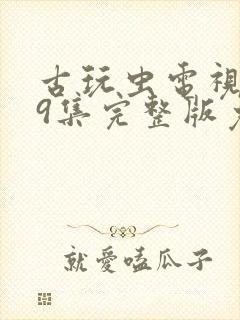 古玩虫電視
9集完整版免
就愛嗑瓜子